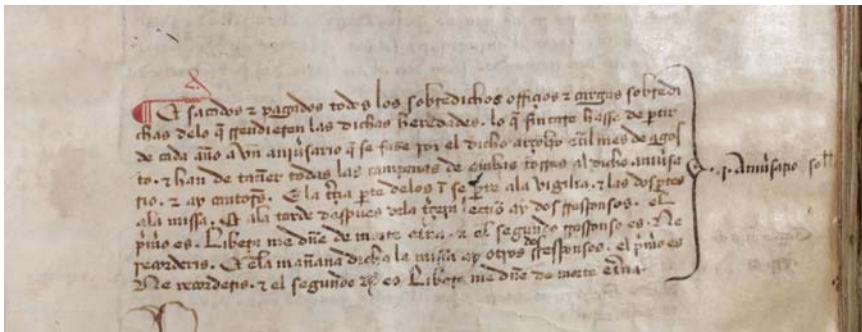 ¶ Et sacados & pagados todos los sobredichos offiçios & cargas sobredi
chas delo q̃ rrendieren las dichas heredades. lo q̃ fincare hasse de partir
de cada año a vn aniũsario q̃ se faze por el dicho arçobpo enel mes de agos
to. & han de tañer todas las campanas de ambas torres al dicho aniũsa
rio. & ay cantores. E la t̃çia p̱te delos mr̃ se p̱te ala vigilia. & las dos p̱tes
ala missa. Et ala tarde despues dela t̃çera lectiõ ay dos rresponsos. el
p̃mo es. Libera me dñe de morte etña. & el segundo rresponso es. Ne
recorderis. Et ela mañana dicha la missa ay otros dos rresponsos. el p̃mo es
Ne recorderis. & el segundo es Libera me dñe de morte etña.
.j. Aniũsario soll